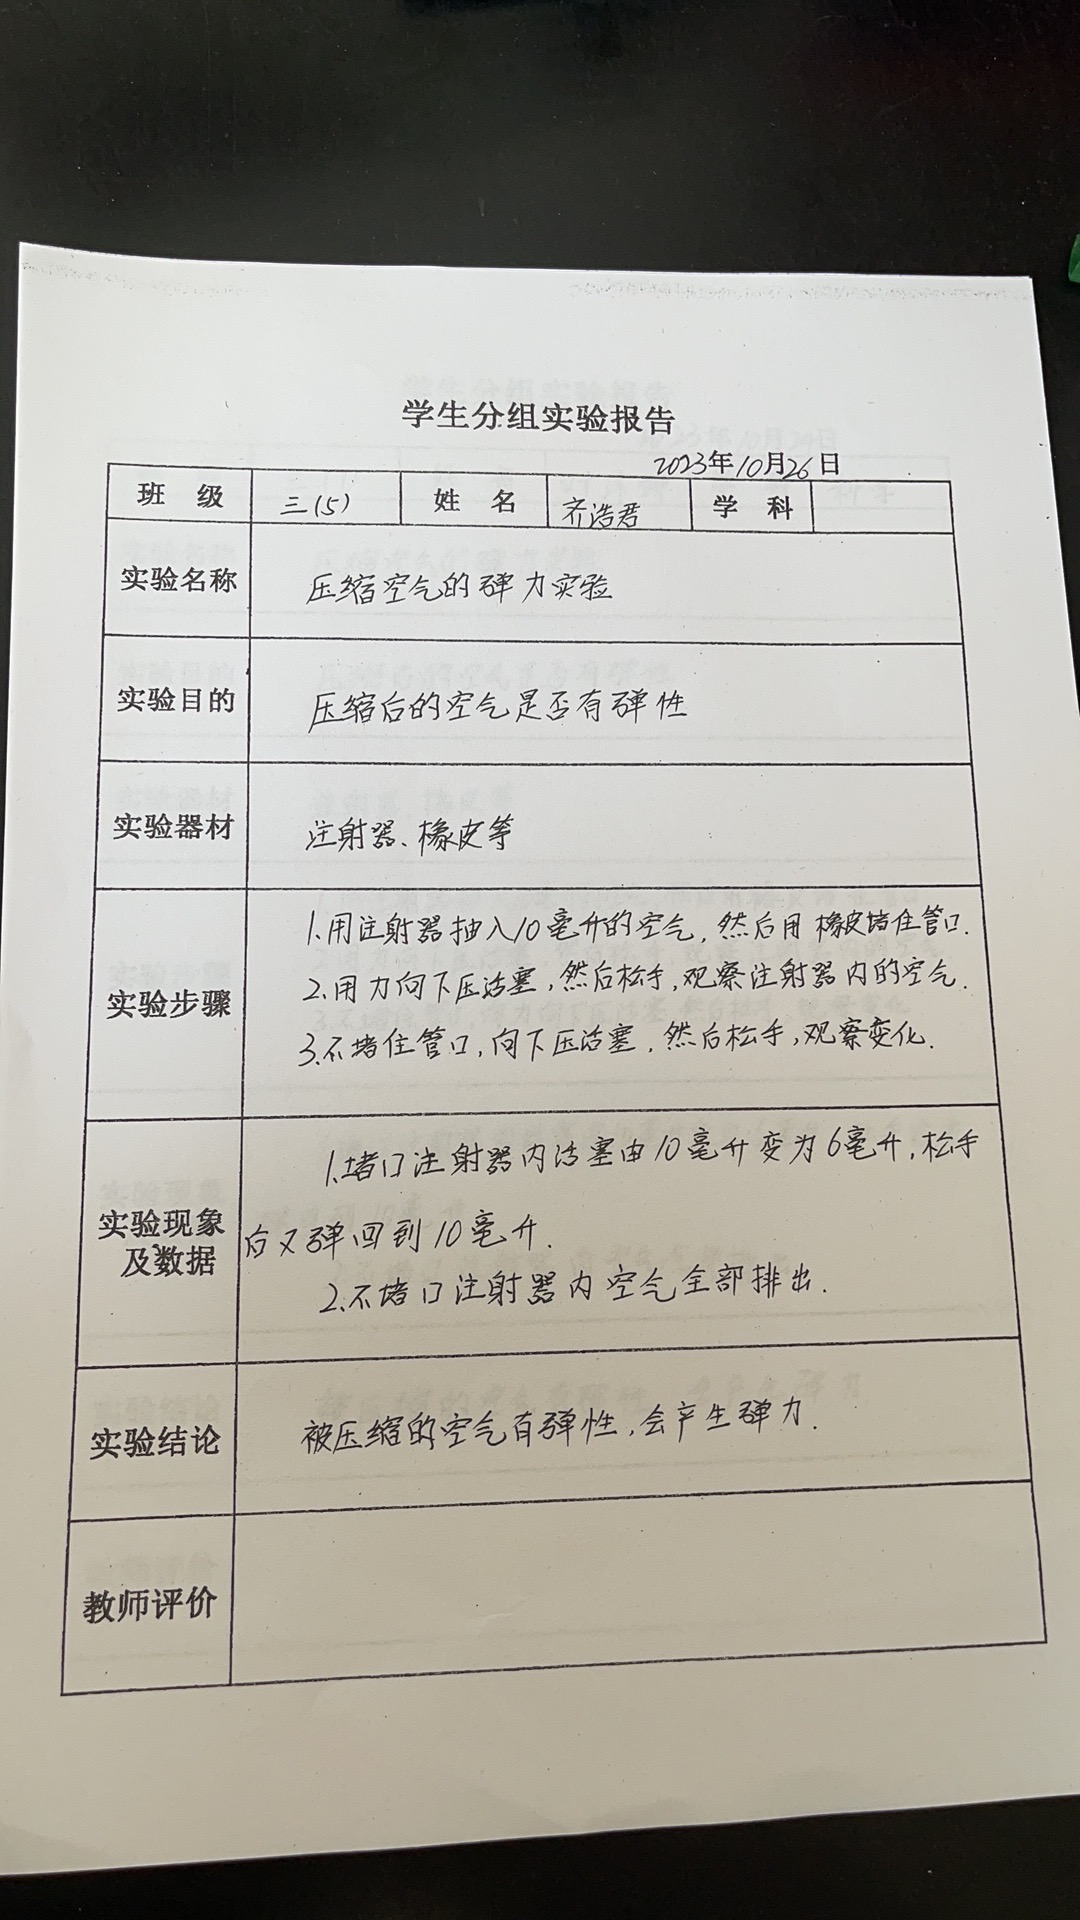 学生分组实验报告
2023年10月26日
班 级 三(5) 姓 名 齐浩君 学 科
实验名称 压缩空气的弹力实验
实验目的 压缩后的空气是否有弹性
实验器材 注射器、橡皮等
实验步骤
1.用注射器抽入10毫升的空气,然后用橡皮堵住管口.
2.用力向下压活塞,然后松手,观察注射器内的空气.
3.不堵住管口,向下压活塞,然后松手,观察变化.
实验现象
及数据
1.堵口注射器内活塞由10毫升变为6毫升,松手
后又弹回到10毫升.
2.不堵口注射器内空气全部排出.
实验结论 被压缩的空气有弹性,会产生弹力.
教师评价